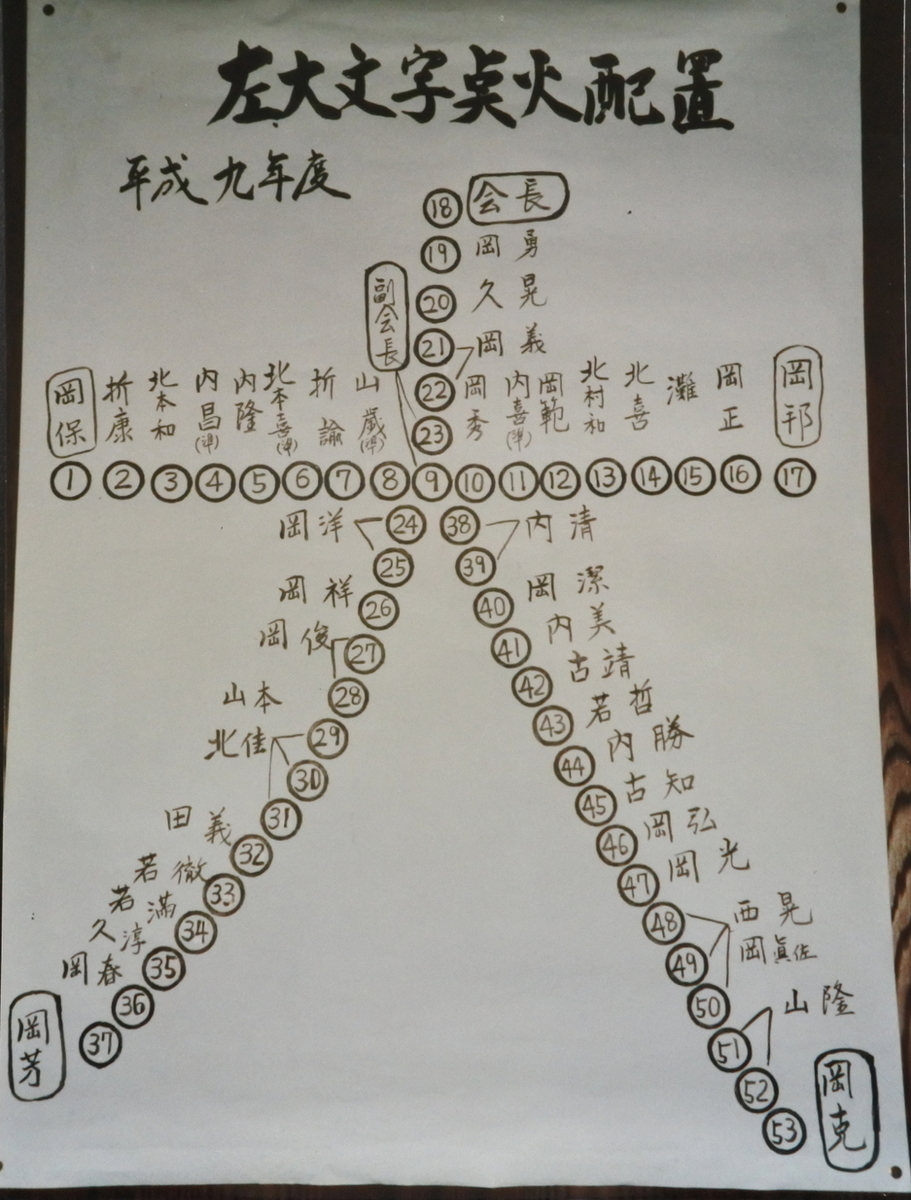 左大文字点火配置
平成九年度
⑱ 会長
⑲ 岡 勇
⑳ 久 晃
㉑ 岡 義
副会長
㉒
㉓
岡保
折康
北本和
内昌(準)
内隆
北本喜(準)
折諭
山歳(準)
岡秀
内喜(準)
岡範
北村和
北喜
灘
岡正
岡邦
① ② ③ ④ ⑤ ⑥ ⑦ ⑧ ⑨ ⑩ ⑪ ⑫ ⑬ ⑭ ⑮ ⑯ ⑰
岡洋 ㉔
㉕
岡祥 ㉖
岡俊 ㉗
山本 ㉘
北佳 ㉙
㉚
㉛
田義 ㉜
若徹 ㉝
若満 ㉞
久淳 ㉟
岡春 ㊱
岡芳 ㊲
㊳ 内清
㊴
㊵ 岡潔
㊶ 内美
㊷ 古靖
㊸ 若哲
㊹ 内勝
㊺ 古知
㊻ 岡弘
㊼ 岡光
㊽ 西晃
㊾ 岡眞佐
㊿
51 山隆
52
53 岡克